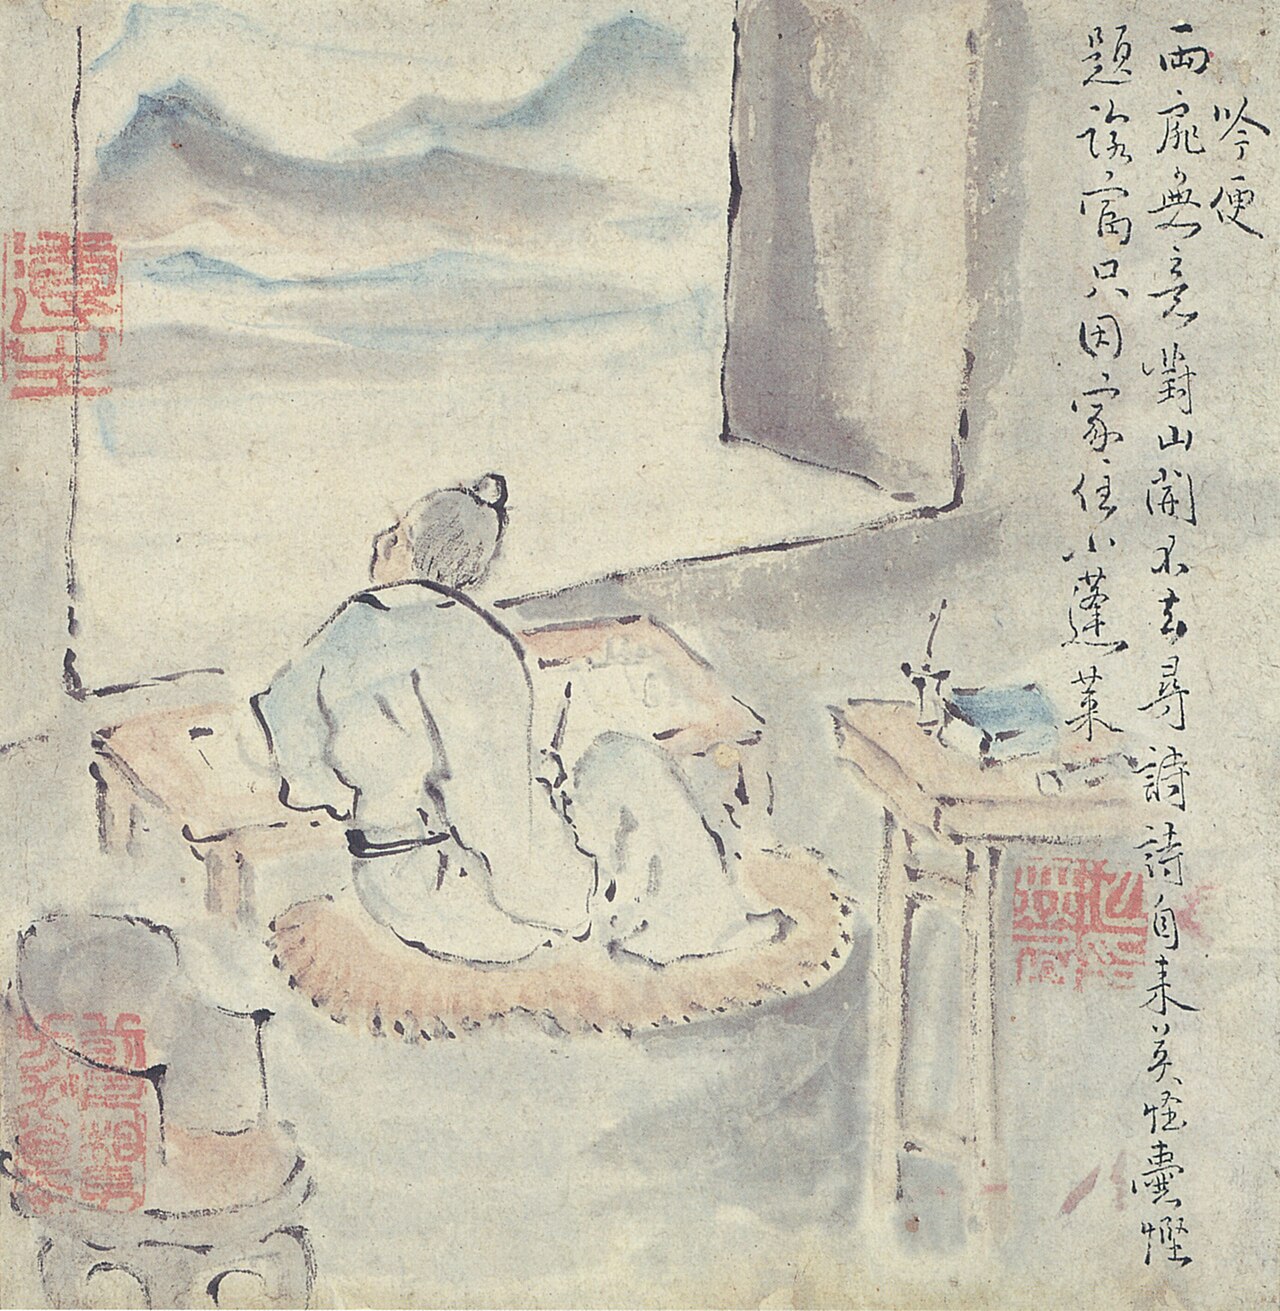 吟便
兩扉無意對山開不去尋詩詩自来莫怪囊慳
題詠富只因家住小蓬莱